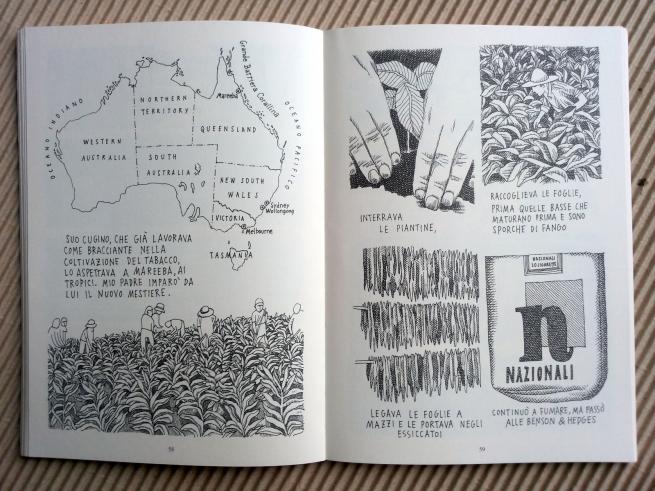 OCEANO INDIANO
Grande Barriera Corallina
Mareeba
OCEANO PACIFICO
NORTHERN
TERRITORY
QUEENSLAND
WESTERN
AUSTRALIA
SOUTH
AUSTRALIA
NEW SOUTH
WALES
Sydney
Wollongong
VICTORIA
Melbourne
TASMANIA
SUO CUGINO, CHE GIÀ LAVORAVA
COME BRACCIANTE NELLA
COLTIVAZIONE DEL TABACCO,
LO ASPETTAVA A MAREEBA, AI
TROPICI. MIO PADRE IMPARÒ DA
LUI IL NUOVO MESTIERE.
58
INTERRAVA
LE PIANTINE,
RACCOGLIEVA LE FOGLIE,
PRIMA QUELLE BASSE CHE
MATURANO PRIMA E SONO
SPORCHE DI FANGO
LEGAVA LE FOGLIE A
MAZZI E LE PORTAVA NEGLI
ESSICCATOI
NAZIONALI
20 SIGARETTE
n
NAZIONALI
CONTINUÒ A FUMARE, MA PASSÒ
ALLE BENSON & HEDGES
59